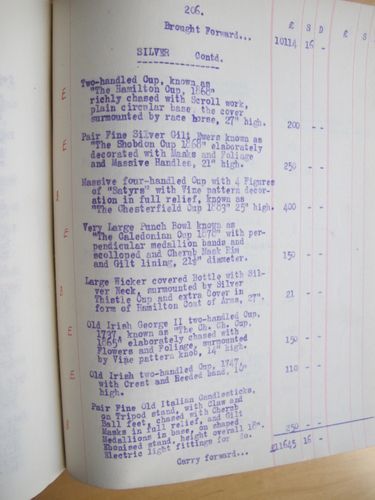 206.
£ S D £ S
Brought Forward... 10114 16 -
SILVER Contd.
Two-handled Cup, known as
"The Hamilton Cup, 1868"
richly chased with Scroll work,
plain circular base, the cover
surmounted by race horse, 27" high. 200 - -
Pair Fine Silver Gilt Ewers known as
"The Shobdon Cup 1868" elaborately
decorated with Masks and Foliage
and Massive Handles, 21" high. 250 - -
Massive four-handled Cup with 4 Figures
of "Satyrs" with Vine pattern decor-
ation in full relief, known as
"The Chesterfield Cup 1883" 25" high. 400 - -
Very Large Punch Bowl known as
"The Caledonian Cup 1878" with per-
pendicular medallion bands and
scolloped and Cherub Mask Rim
and Gilt lining, 21½" diameter. 150 - -
Large Wicker covered Bottle with Sil-
ver Neck, surmounted by Silver
Thistle Cup and extra Cover in
form of Hamilton Coat of Arms, 27". 21 - -
Old Irish George II two-handled Cup,
1737, known as "The Ch. Ch. Cup,
1865" elaborately chased with
Flowers and Foliage, surmounted
by Vine pattern knob, 14" high. 150 - -
Old Irish two-handled Cup, 1747,
with Crest and Reeded band, 14"
high. 110 - -
Pair Fine Old Italian Candlesticks,
on Tripod stand, with Claw and
Ball feet, chased with Cherub
Masks in full relief, and Gilt
Medallions in base, on shaped
Ebonised stand, height overall 18".
Electric light fittings for do. 250 - -
Carry forward... £11645 16 -